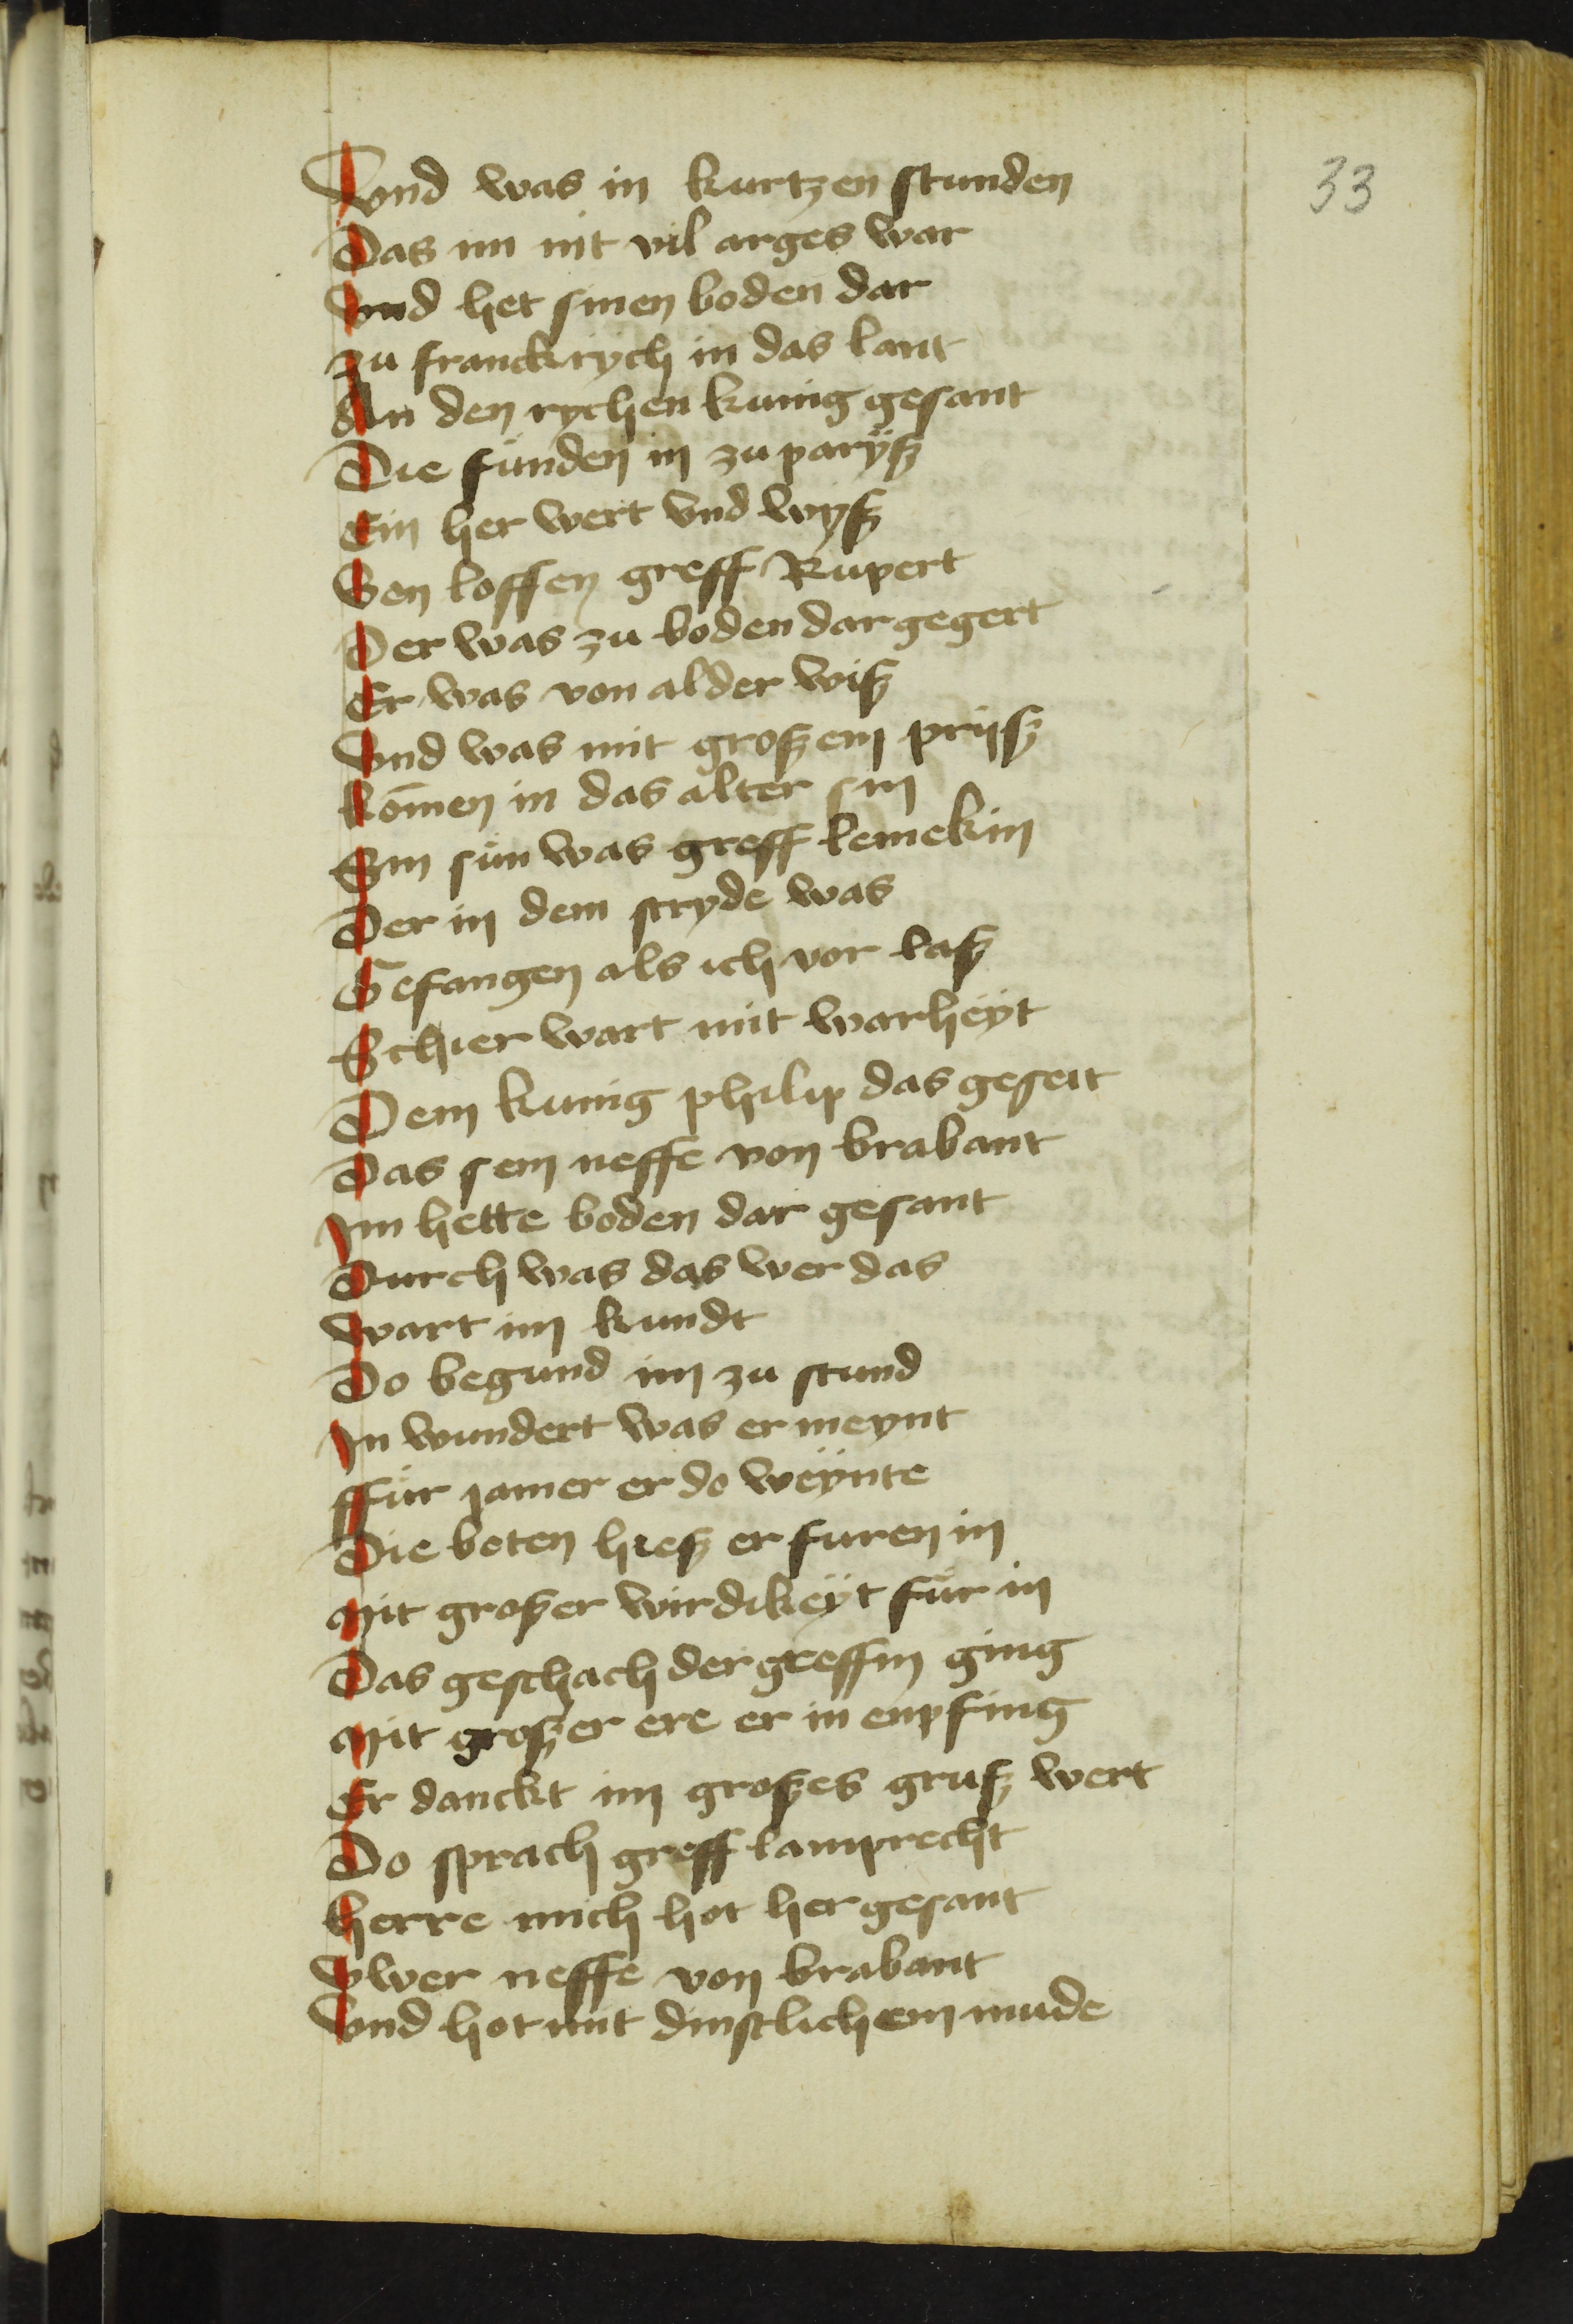 33
Vnd was in kurtzen stunden
Das im nit vil arges war
Vnd het sinen boden dar
zu franckrych in das lant
An den rychen kunig gesant
Die fůnden in zu paryß
Ein her wert vnd wyß
Von loffen greff Rupert
Der was zu boden dar gegert
Er was von alder wiß
Vnd was mit großem prijß
kōmen in das alter sin
Sin sůn was greff lemekin
Der in dem stryde was
Gefangen als ich vor laß
Schier wart mit warheÿt
Dem kunig philip das geseit
Das sein neffe von brabant
Im hette boden dar gesant
Durch was das wer das
wart im kundt
Do begund im zu stund
In wundert was er meynt
ffůr jamer er do weÿnte
Die boten hieß er furen in
Mit großer wirdikeÿt fůr in
Das geschach der greff in ging
Mit großer ere er in enpfing
Er danckt im großes gruß wert
Do sprach greff lamprecht
herre mich hot her gesant
Vwer neffe von brabant
Vnd hot mit dinstlichem mude